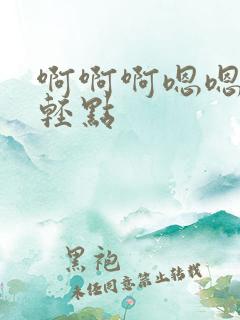 啊啊啊嗯嗯
輕點
黑袍
未经同意禁止转载